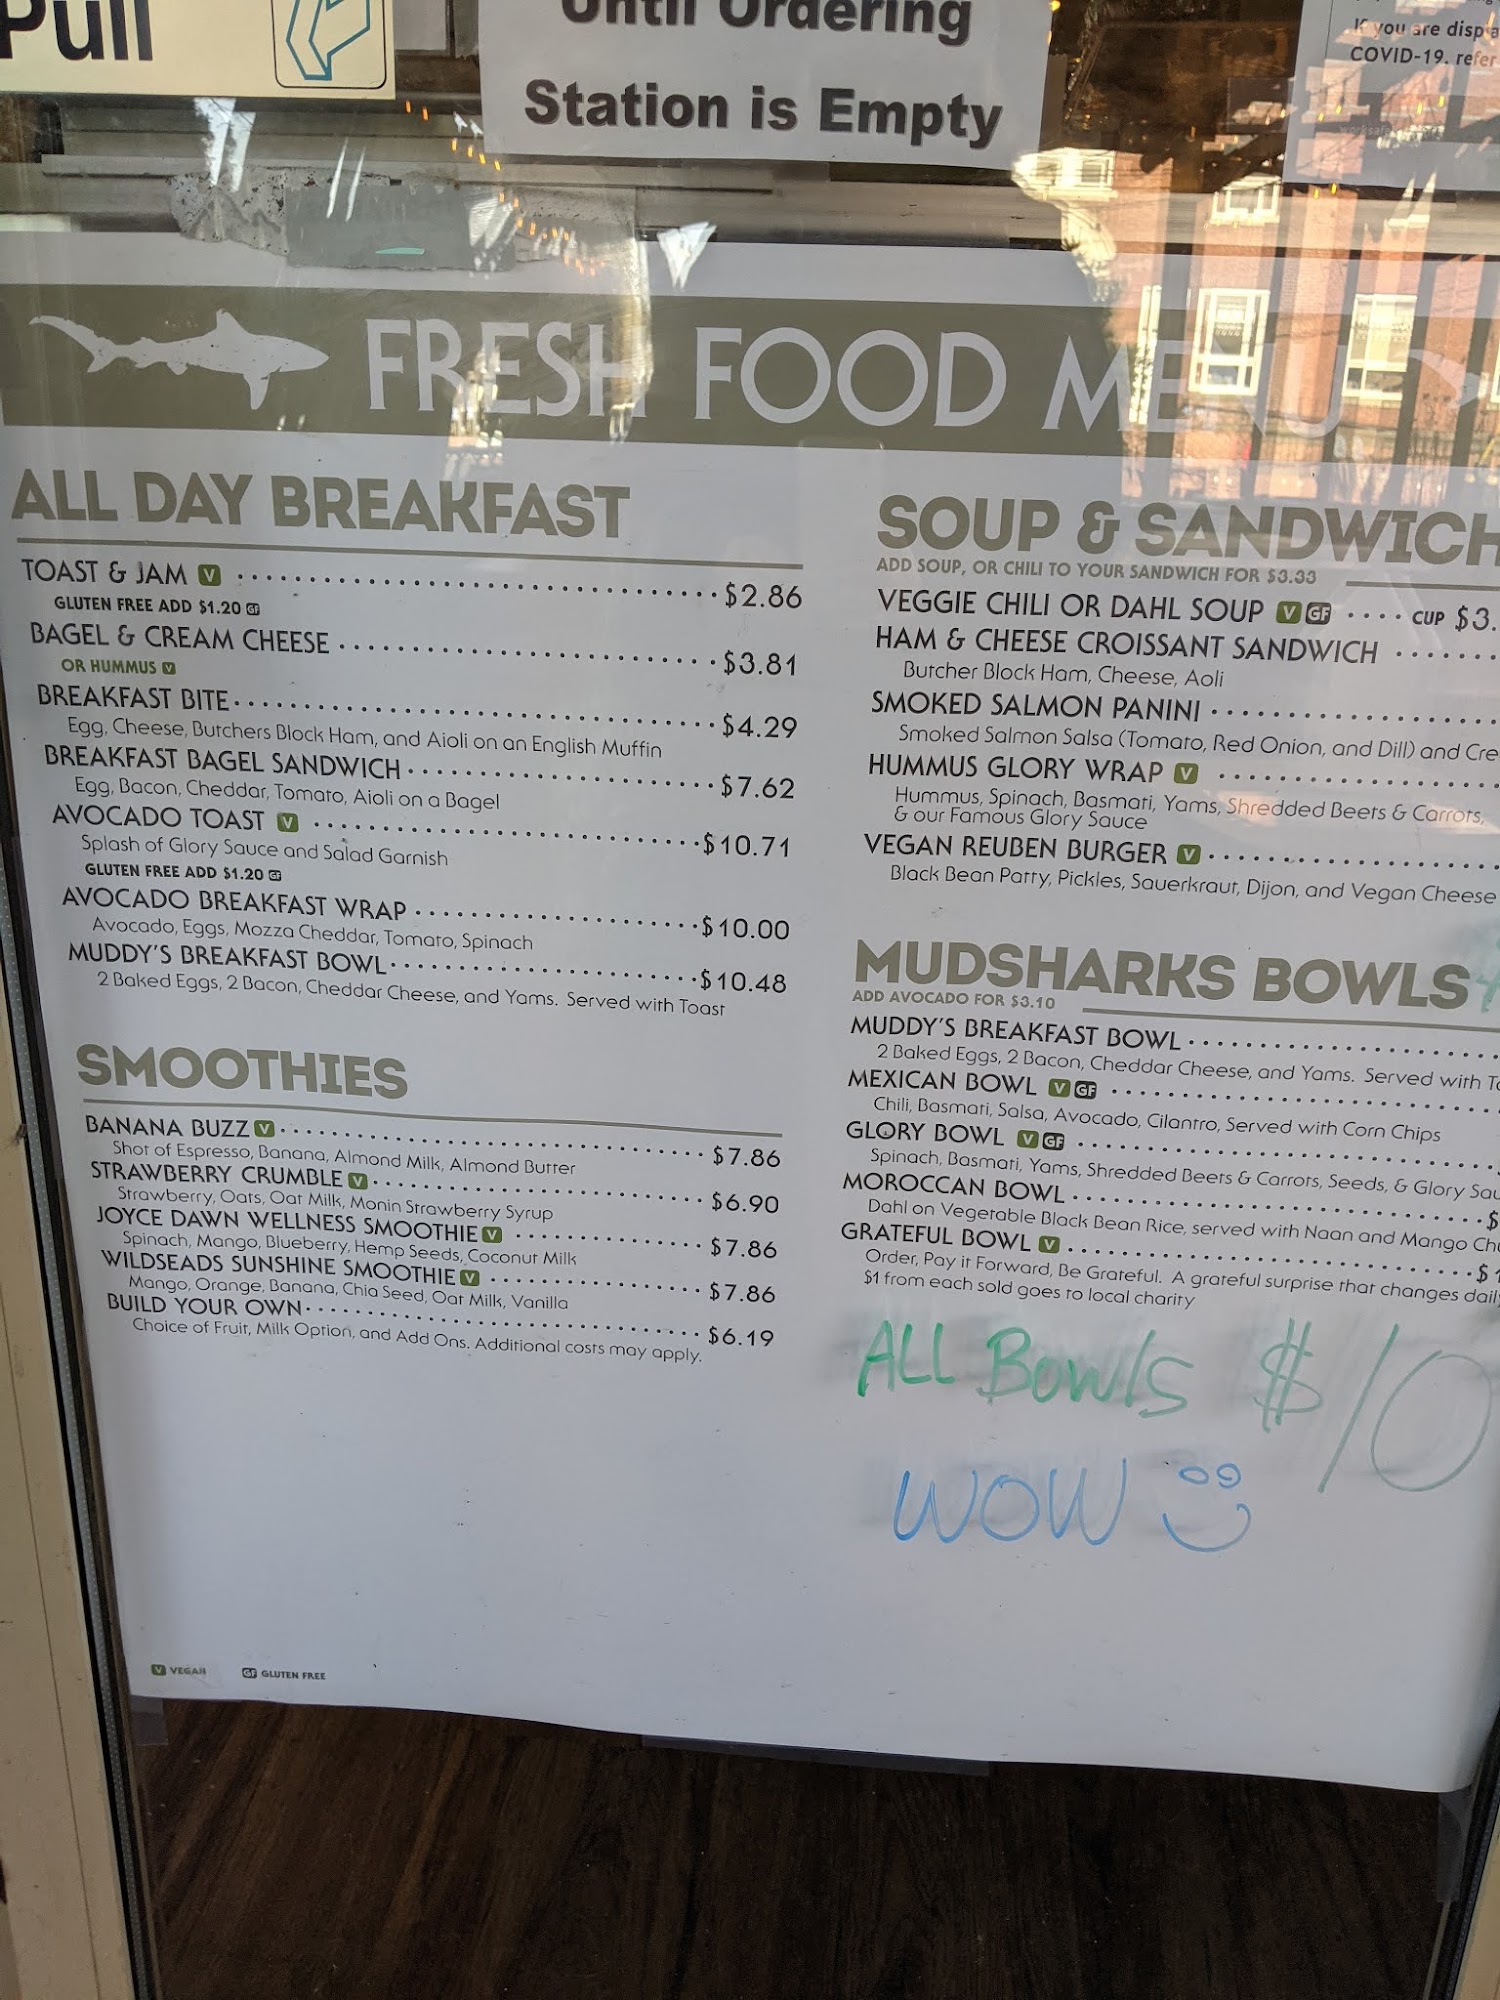 Pull
Until Ordering
Station is Empty
If you are
COVID-19. refer
FRESH FOOD MENU
ALL DAY BREAKFAST
TOAST & JAM V $2.86
GLUTEN FREE ADD $1.20 GF
BAGEL & CREAM CHEESE $3.81
OR HUMMUS V
BREAKFAST BITE $4.29
Egg, Cheese, Butchers Block Ham, and Aioli on an English Muffin
BREAKFAST BAGEL SANDWICH $7.62
Egg, Bacon, Cheddar, Tomato, Aioli on a Bagel
AVOCADO TOAST V $10.71
Splash of Glory Sauce and Salad Garnish
GLUTEN FREE ADD $1.20 GF
AVOCADO BREAKFAST WRAP $10.00
Avocado, Eggs, Mozza Cheddar, Tomato, Spinach
MUDDY'S BREAKFAST BOWL $10.48
2 Baked Eggs, 2 Bacon, Cheddar Cheese, and Yams. Served with Toast
SMOOTHIES
BANANA BUZZ V $7.86
Shot of Espresso, Banana, Almond Milk, Almond Butter
STRAWBERRY CRUMBLE V $6.90
Strawberry, Oats, Oat Milk, Monin Strawberry Syrup
JOYCE DAWN WELLNESS SMOOTHIE V $7.86
Spinach, Mango, Blueberry, Hemp Seeds, Coconut Milk
WILDSEADS SUNSHINE SMOOTHIE V $7.86
Mango, Orange, Banana, Chia Seed, Oat Milk, Vanilla
BUILD YOUR OWN $6.19
Choice of Fruit, Milk Option, and Add Ons. Additional costs may apply.
V VEGAN GF GLUTEN FREE
SOUP & SANDWICH
ADD SOUP, OR CHILI TO YOUR SANDWICH FOR $3.33
VEGGIE CHILI OR DAHL SOUP V GF CUP $3.
HAM & CHEESE CROISSANT SANDWICH
Butcher Block Ham, Cheese, Aoli
SMOKED SALMON PANINI
Smoked Salmon Salsa (Tomato, Red Onion, and Dill) and Cre
HUMMUS GLORY WRAP V
Hummus, Spinach, Basmati, Yams, Shredded Beets & Carrots,
& our Famous Glory Sauce
VEGAN REUBEN BURGER V
Black Bean Patty, Pickles, Sauerkraut, Dijon, and Vegan Cheese
MUDSHARKS BOWLS
ADD AVOCADO FOR $3.10
MUDDY'S BREAKFAST BOWL
2 Baked Eggs, 2 Bacon, Cheddar Cheese, and Yams. Served with To
MEXICAN BOWL V GF
Chili, Basmati, Salsa, Avocado, Cilantro, Served with Corn Chips
GLORY BOWL V GF
Spinach, Basmati, Yams, Shredded Beets & Carrots, Seeds, & Glory Sau
MOROCCAN BOWL $
Dahl on Vegetable Black Bean Rice, served with Naan and Mango Chu
GRATEFUL BOWL V $1
Order, Pay it Forward, Be Grateful. A grateful surprise that changes daily
$1 from each sold goes to local charity
ALL Bowls $10
WOW